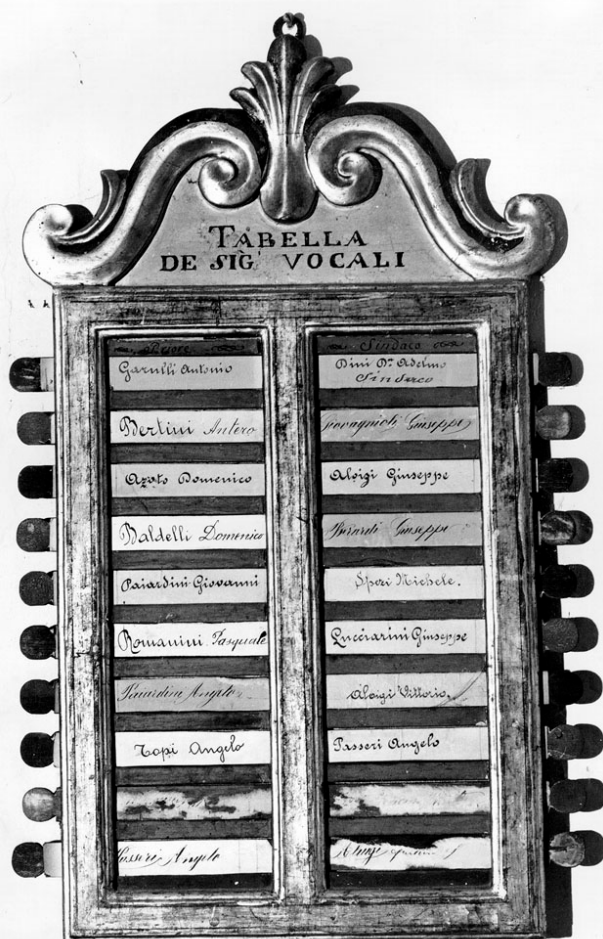 TABELLA
DE SIG.ⁱ VOCALI
Priore
Garulli Antonio
Bertini Antero
Azoto Domenico
Baldelli Domenico
Paiardini Giovanni
Romanini Pasquale
Paiardini Angelo
Topi Angelo
Passeri Angelo
Sindaco
Dini Dr. Adelmo
Sindaco
Giovagnioli Giuseppe
Aloigi Giuseppe
Giuseppe
Spori Michele.
Lucciarini Giuseppe
Aloigi Vittorio.
Passeri Angelo